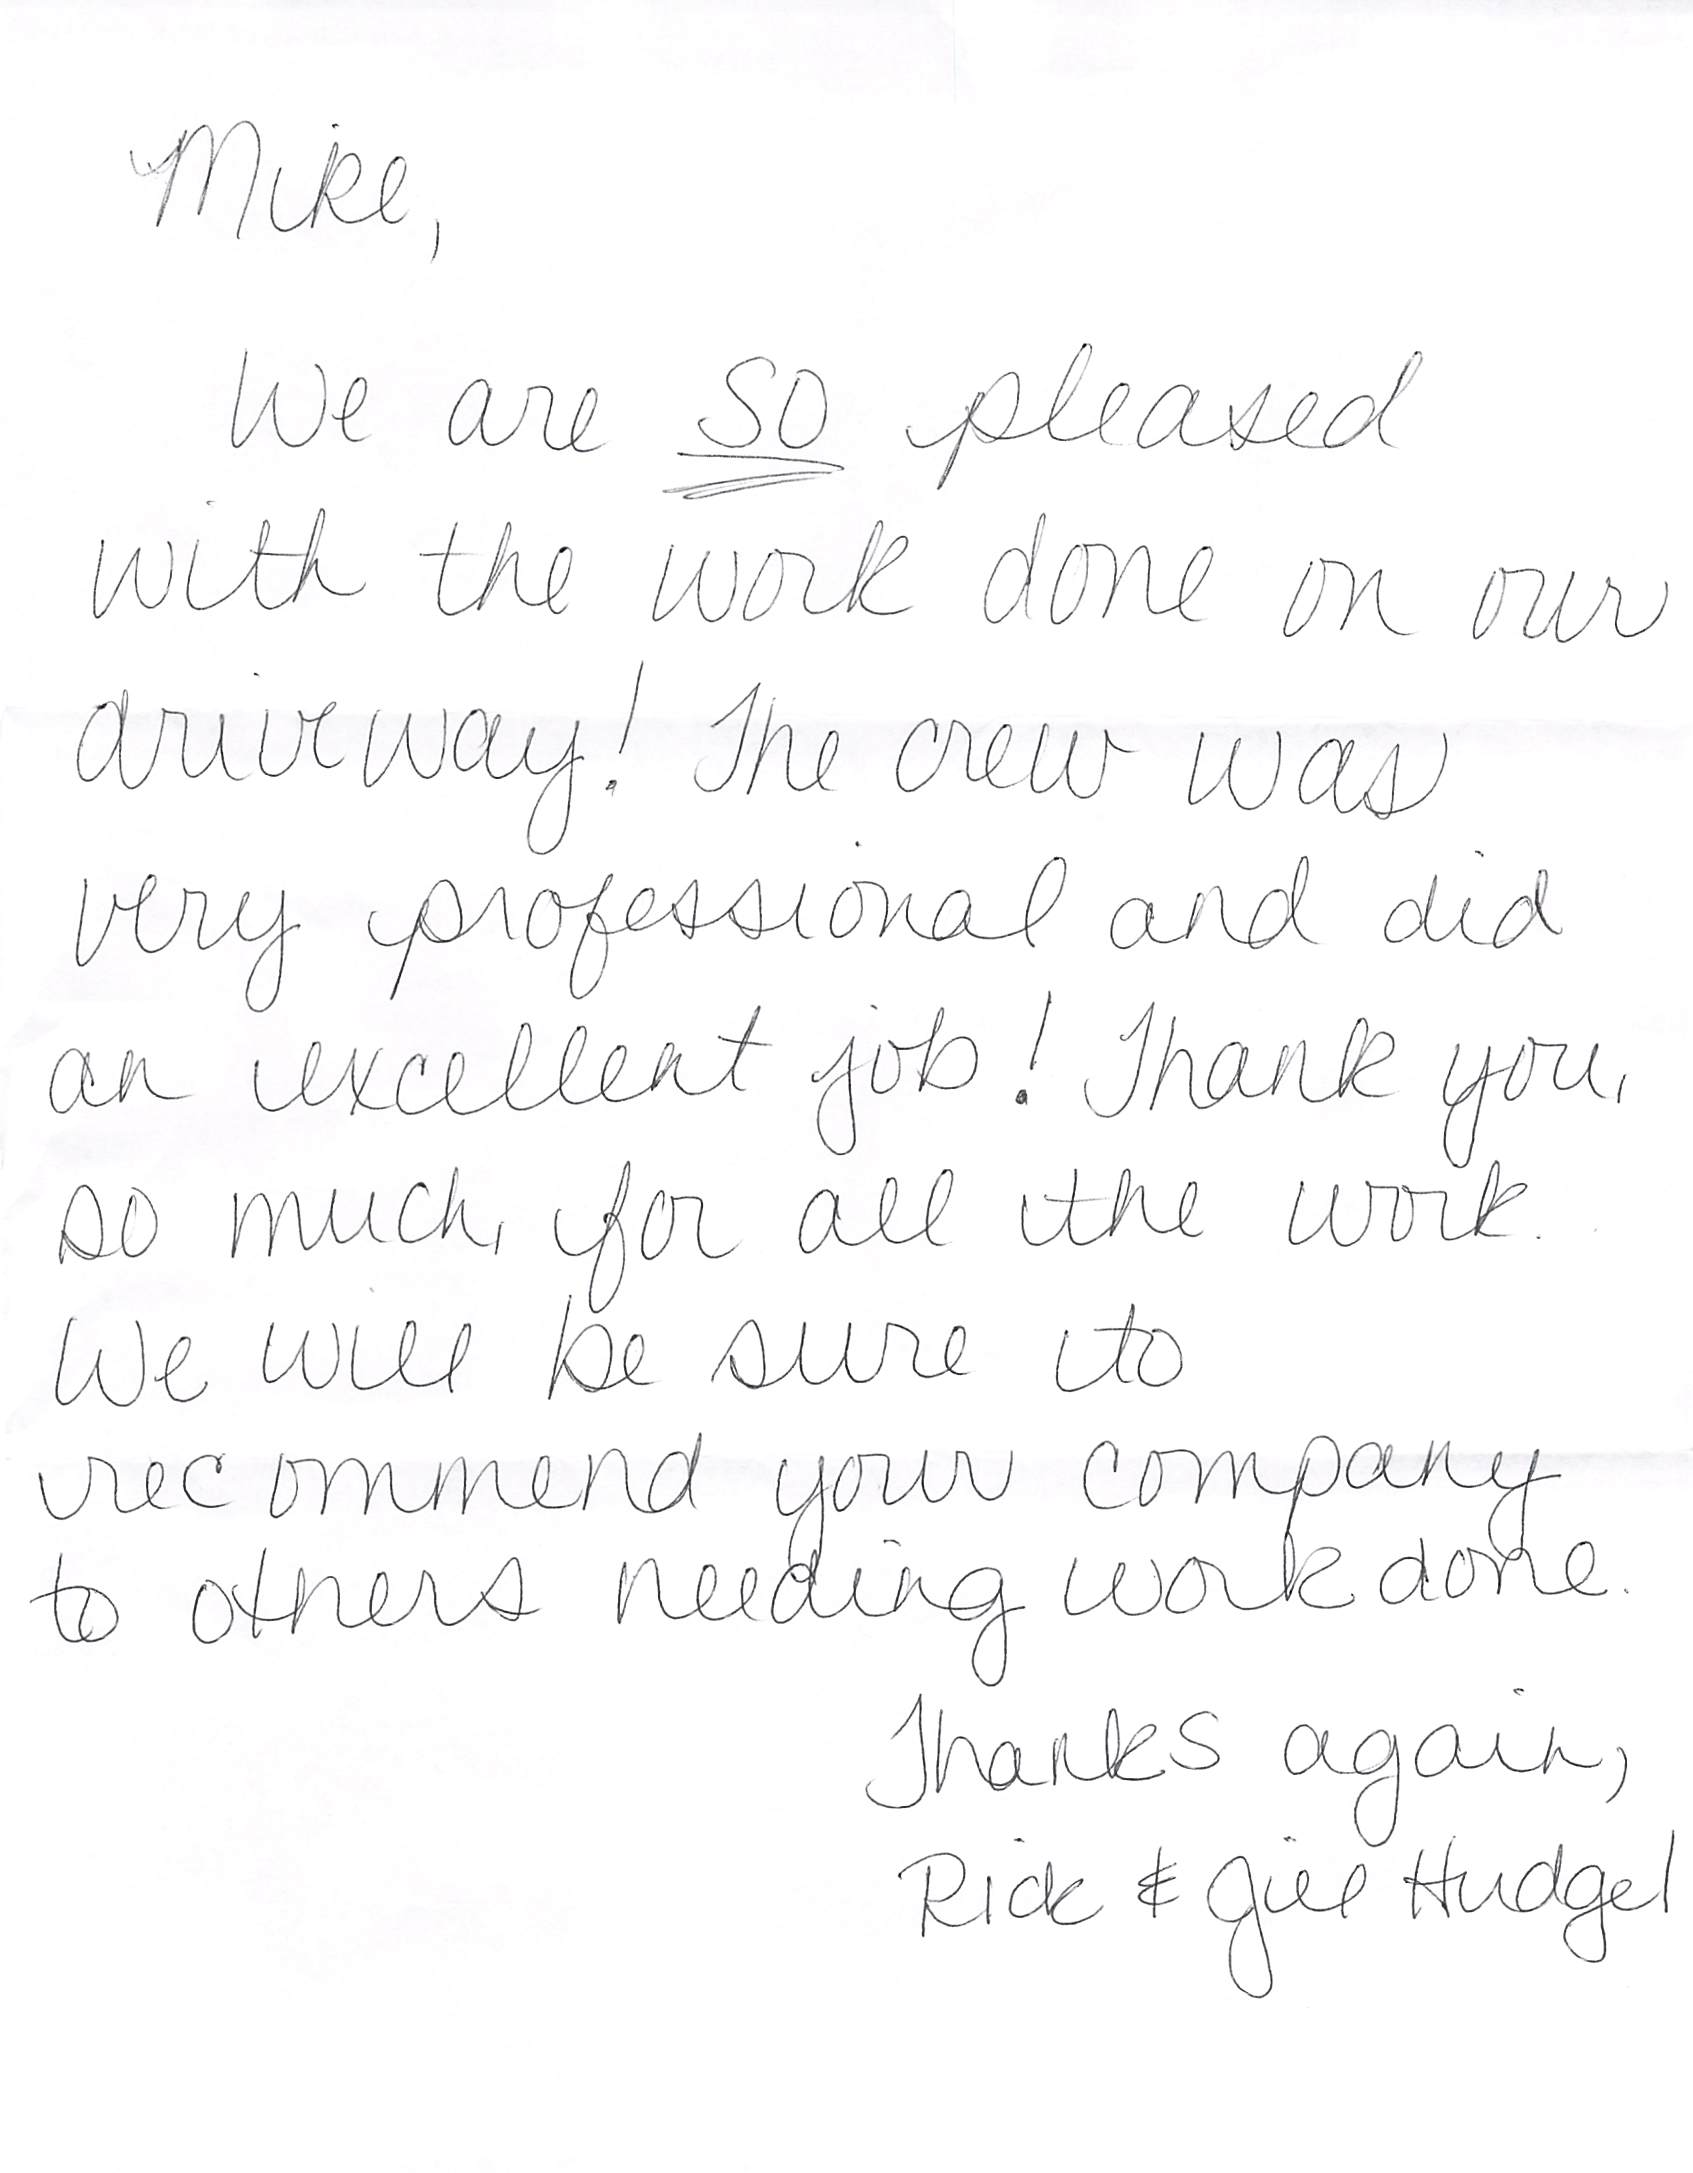 Mike,
We are SO pleased
with the work done on our
driveway! The crew was
very professional and did
an excellent job! Thank you,
so much, for all the work.
We will be sure to
recommend your company
to others needing work done.
Thanks again,
Rick & Jill Hudgel